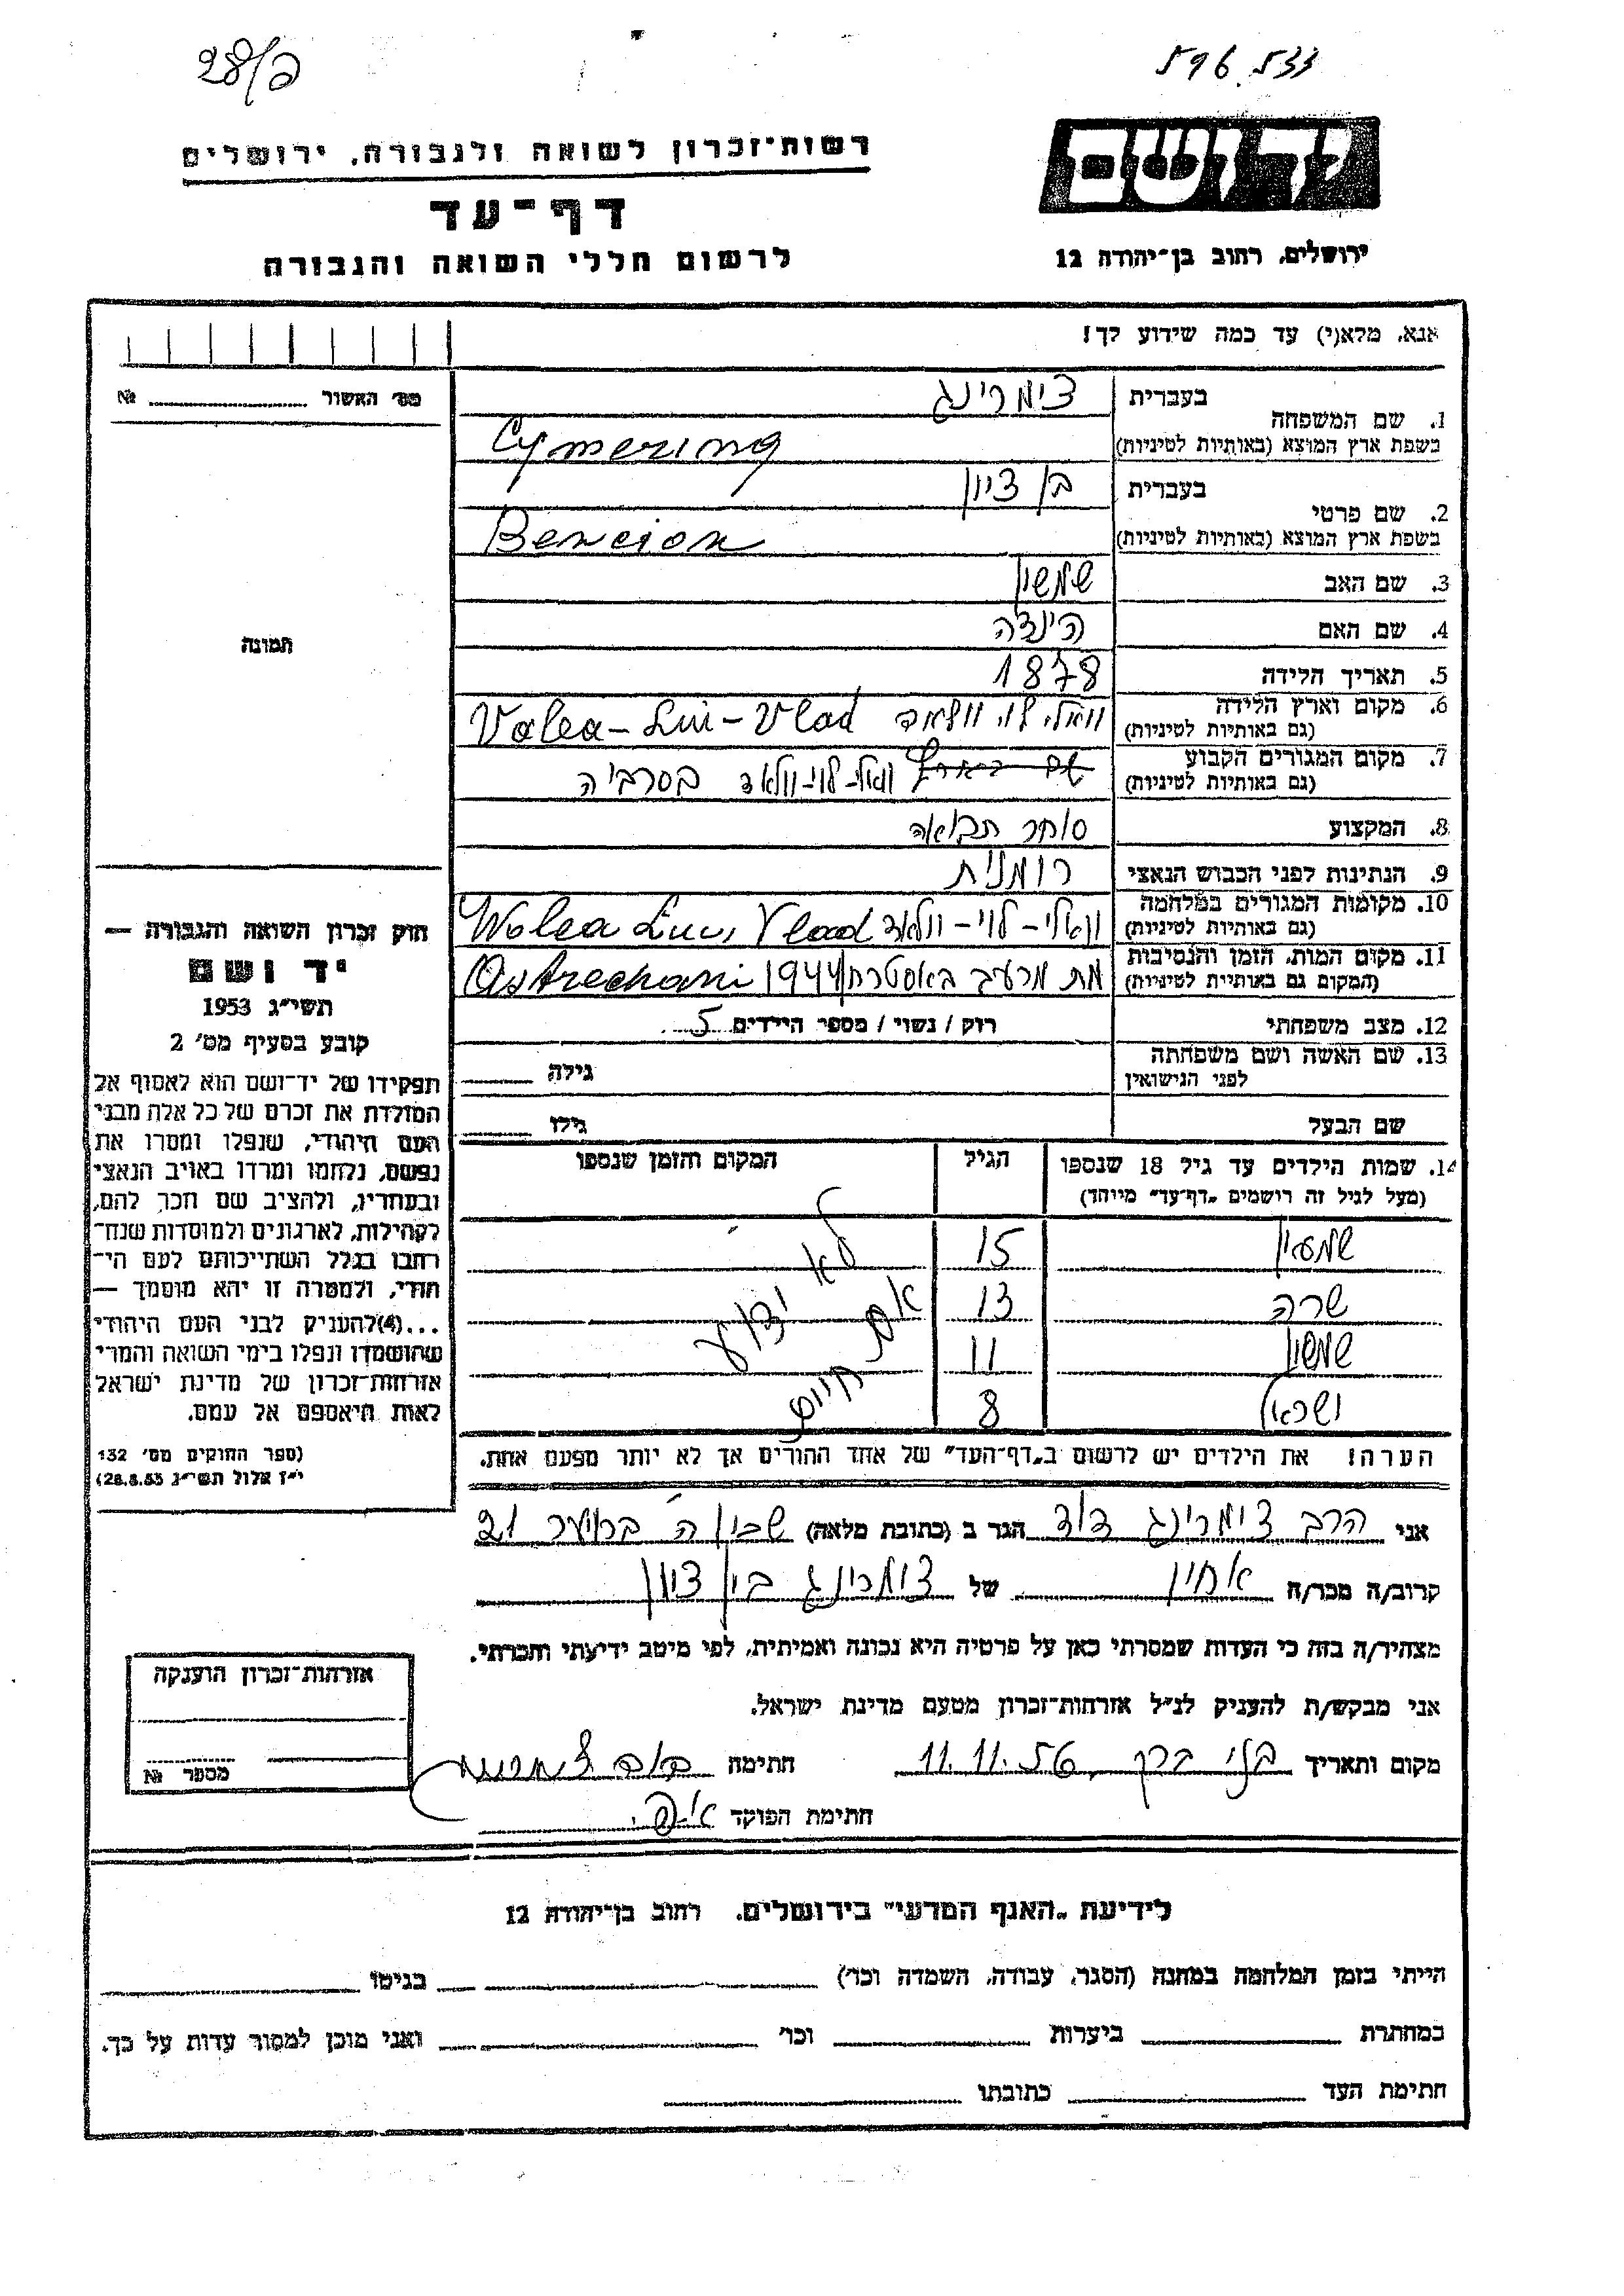 596.533
28/פ
יד ושם
רשות־זכרון לשואה ולגבורה, ירושלים
דף־עד
לרשום חללי השואה והגבורה
ירושלים, רחוב בן־יהודה 12
אנא, מלא(י) עד כמה שידוע לך!
מס׳ האשור № 
1. שם המשפחה בעברית צימרינג
בשפת ארץ המוצא (באותיות לטיניות) Cymering
2. שם פרטי בעברית בן ציון
בשפת ארץ המוצא (באותיות לטיניות) Bencion
3. שם האב שמשון
4. שם האם הינדה
5. תאריך הלידה 1878
6. מקום וארץ הלידה (גם באותיות לטיניות) וואלי לוי וולאד Valea-Lui-Vlad
7. מקום המגורים הקבוע (גם באותיות לטיניות) וואלי-לוי-וולאד בסרביה
8. המקצוע סוחר תבואה
9. הנתינות לפני הכבוש הנאצי רומנית
10. מקומות המגורים במלחמה (גם באותיות לטיניות) וואלי-לוי-וולאד Walea Lui Vlad
11. מקום המות, הזמן והנסיבות (המקום גם באותיות לטיניות) מת מרעב באסטרחן 1944 Astrechani
12. מצב משפחתי רוק / נשוי / מספר הילדים 5
13. שם האשה ושם משפחתה לפני הנישואין גילה
שם הבעל גילו
14. שמות הילדים עד גיל 18 שנספו (מעל לגיל זה רושמים „דף־עד” מייוחד) הגיל המקום והזמן שנספו
שמעון 15
שרה 13
שמשון 11
ישראל 8
לא ידוע
אם חיים
הערה! את הילדים יש לרשום ב„דף־העד” של אחד ההורים אך לא יותר מפעם אחת.
תמונה
חוק זכרון השואה והגבורה —
יד ושם
תשי״ג 1953
קובע בסעיף מס׳ 2
תפקידו של יד־ושם הוא לאסוף אל
המולדת את זכרם של כל אלה מבני
העם היהודי, שנפלו ומסרו את
נפשם, נלחמו ומרדו באויב הנאצי
ובעוזריו, ולהציב שם וזכר להם,
לקהילות, לארגונים ולמוסדות שנח־
רבו בגלל השתייכותם לעם הי־
הודי, ולמטרה זו יהא מוסמך —
...(4)להעניק לבני העם היהודי
שהושמדו ונפלו בימי השואה והמרי
אזרחות־זכרון של מדינת ישראל
לאות היאספם אל עמם.
(ספר החוקים מס׳ 132
י״ז אלול תשי״ג 28.8.53)
אני הרב צימרינג דוד הגר ב (כתובת מלאה) שכון ה 21
קרוב/ה מכר/ה אחיין של צימרינג בן ציון
מצהיר/ה בזה כי העדות שמסרתי כאן על פרטיה היא נכונה ואמיתית, לפי מיטב ידיעתי והכרתי.
אני מבקש/ת להעניק לנ״ל אזרחות־זכרון מטעם מדינת ישראל.
מקום ותאריך בני ברק, 11.11.56 חתימה
חתימת הפוקד
אזרחות־זכרון הוענקה
מספר №
לידיעת „האגף המדעי” בירושלים, רחוב בן־יהודה 12
הייתי בזמן המלחמה במחנה (הסגר, עבודה, השמדה וכו׳) בגיטו
במחתרת ביערות וכו׳ ואני מוכן למסור עדות על כך.
חתימת העד כתובתו